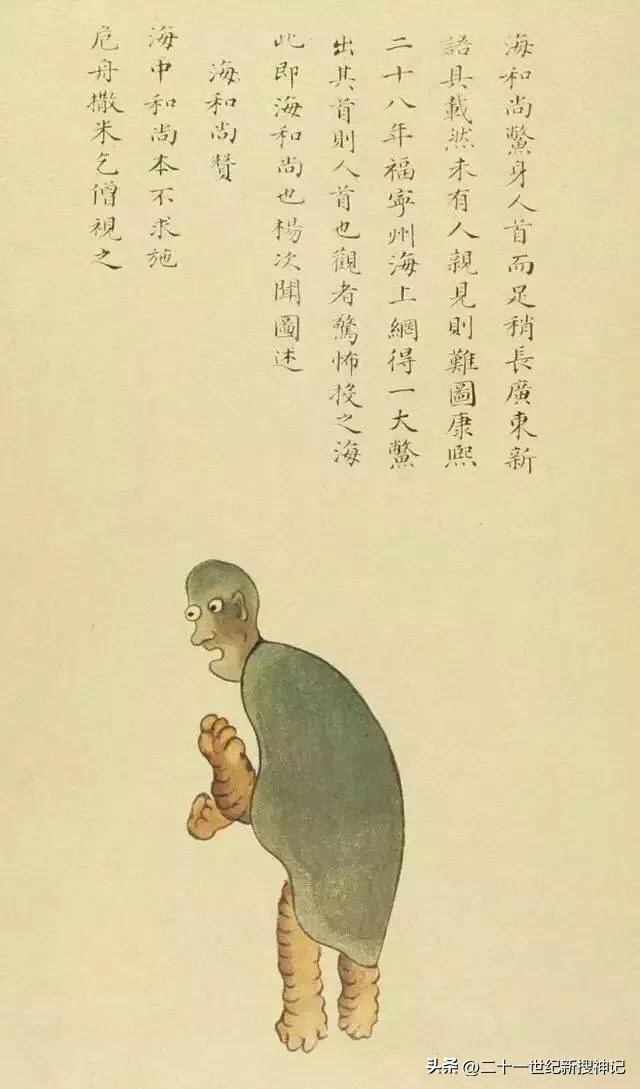 海和尚鱉身人首而足稍長廣東新
語具載然未有人親見則難圖康熙
二十八年福寧州海上網得一大鱉
出其首則人首也觀者驚怖投之海
此即海和尚也楊次聞圖述
海和尚贊
海中和尚本不求施
危舟撒米乞僧視之
头条 @二十一世纪新搜神记